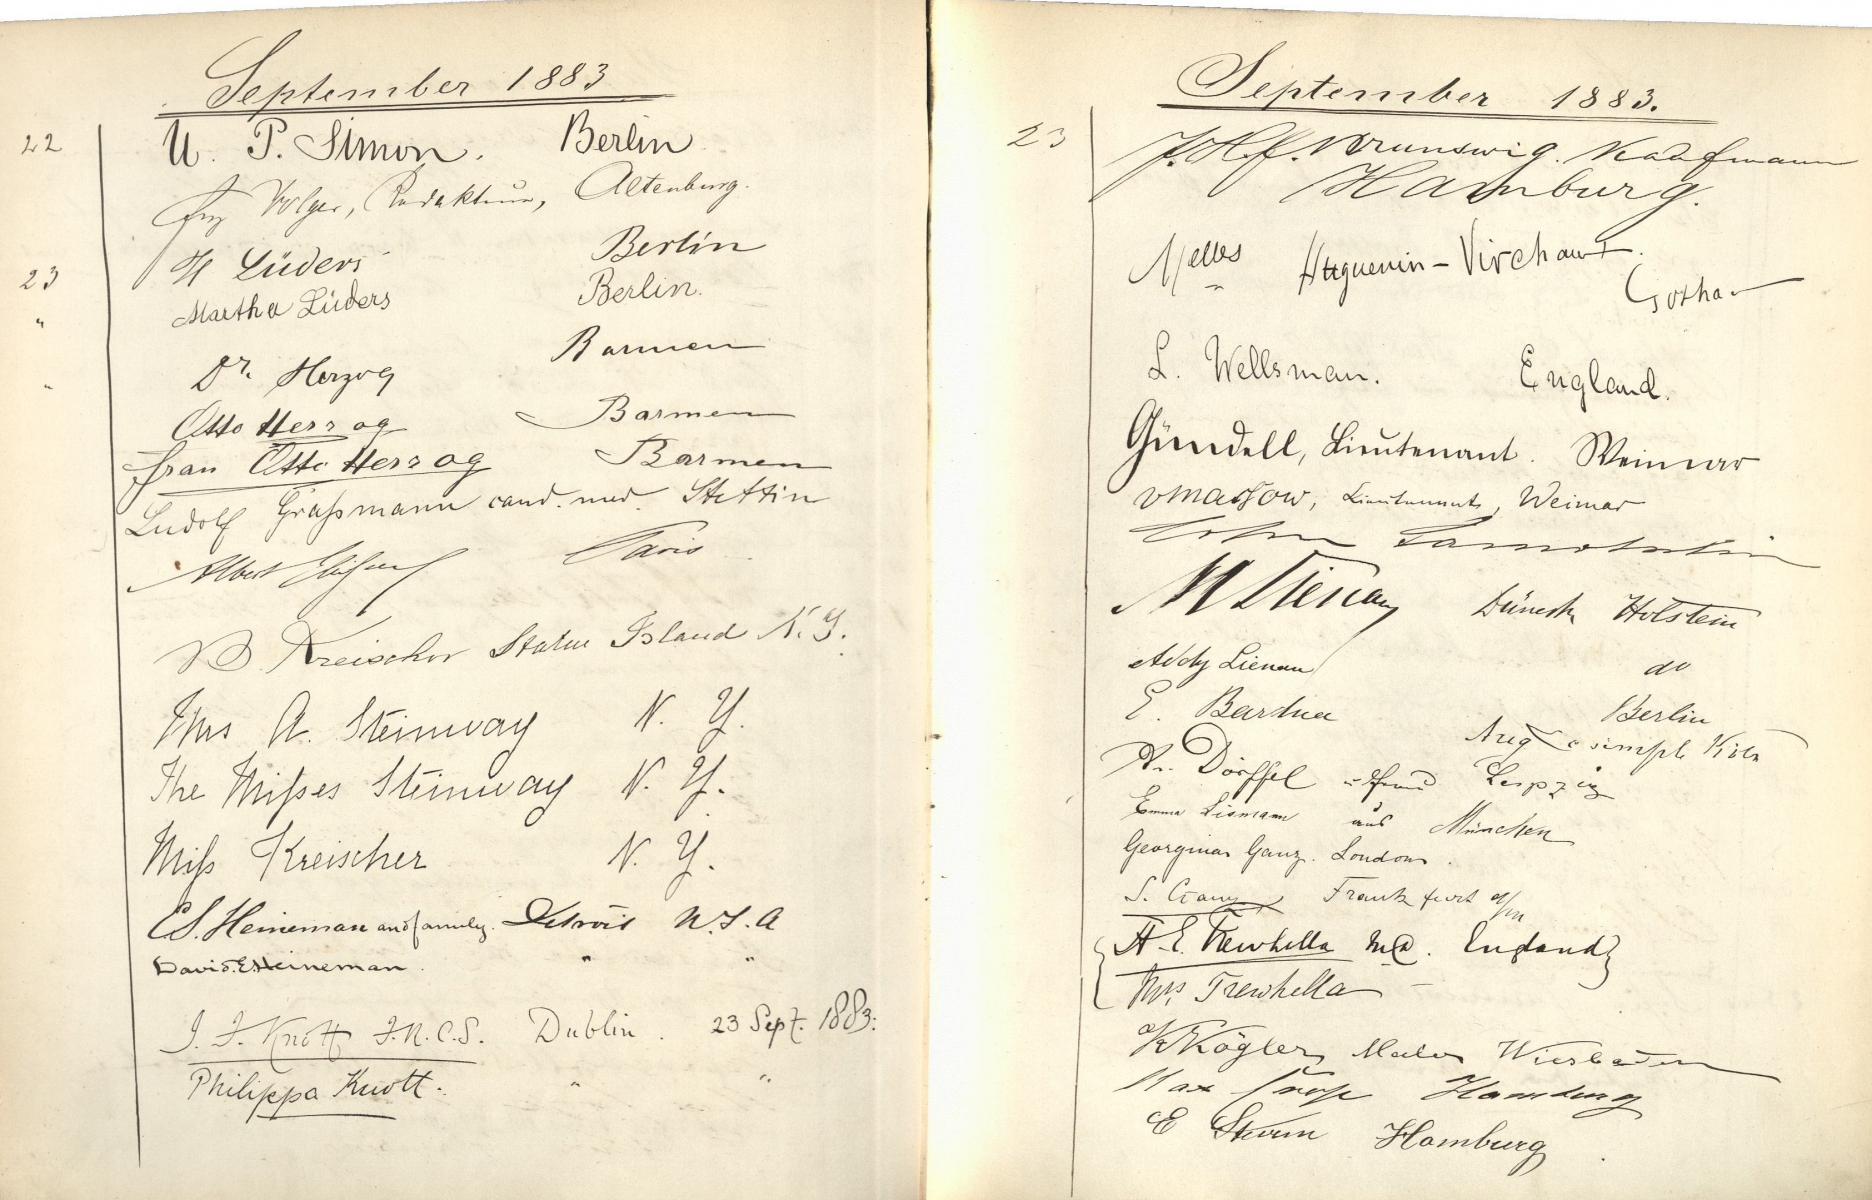 September 1883
22 U. P. Simon. Berlin
Volger, Redakteur, Altenburg.
23 H Lüders Berlin
" Martha Lüders Berlin.
" Dr. Herzog Barmen
Otto Herzog Barmen
Frau Otto Herzog Barmen
Ludolf Graßmann cand. med. Stettin
Albert Paris
B Kreischer Staten Island N. Y.
Mrs A. Steinway N. Y.
The Misses Steinway N. Y.
Miss Kreischer N. Y.
E S. Heineman and family. Detroit U. S. A
David E Heineman " "
J. F. Knott F.R.C.S. Dublin. 23 Sept. 1883.
Philippa Knott. " "
September 1883.
23 J. H. f. Brunswig. Kaufmann
Hamburg.
Melles Huguenin-Virchaux.
Gotha
L. Wellsman. England.
Gündell, Lieutenant. Weimar
v Massow, Lieutenant, Weimar
M Lienau Holstein
Addy Lienau do
E. Berlin
Aug Köln
Dr. Dörffel Leipzig
Emma Lismann aus München
Georgina Ganz. London.
S. Ganz Frankfurt a/m
A. E. Trewhella England
Mrs Trewhella
K Kögler, Maler Wiesbaden
Max Hamburg
E Sturm Hamburg